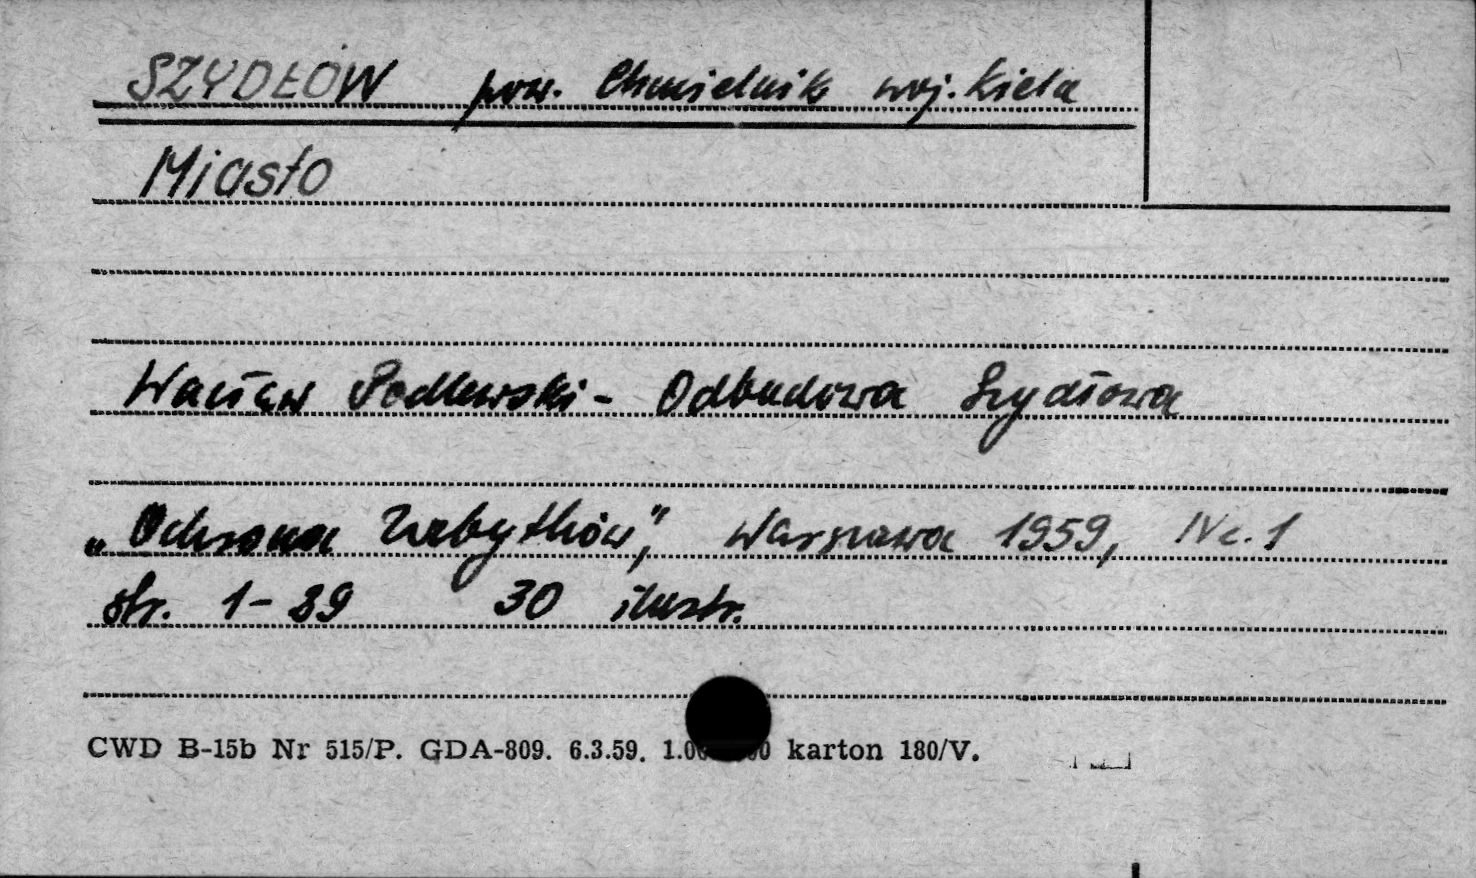 SZYDŁÓW pow. Chmielnik woj. Kiela
Miasto
Wacław Podlewski - Odbudowa Szydłowa
„Ochrona Zabytków", Warszawa 1959, Nr. 1
str. 1-39 30 ilustr.
CWD B-15b Nr 515/P. GDA-809. 6.3.59. karton 180/V.